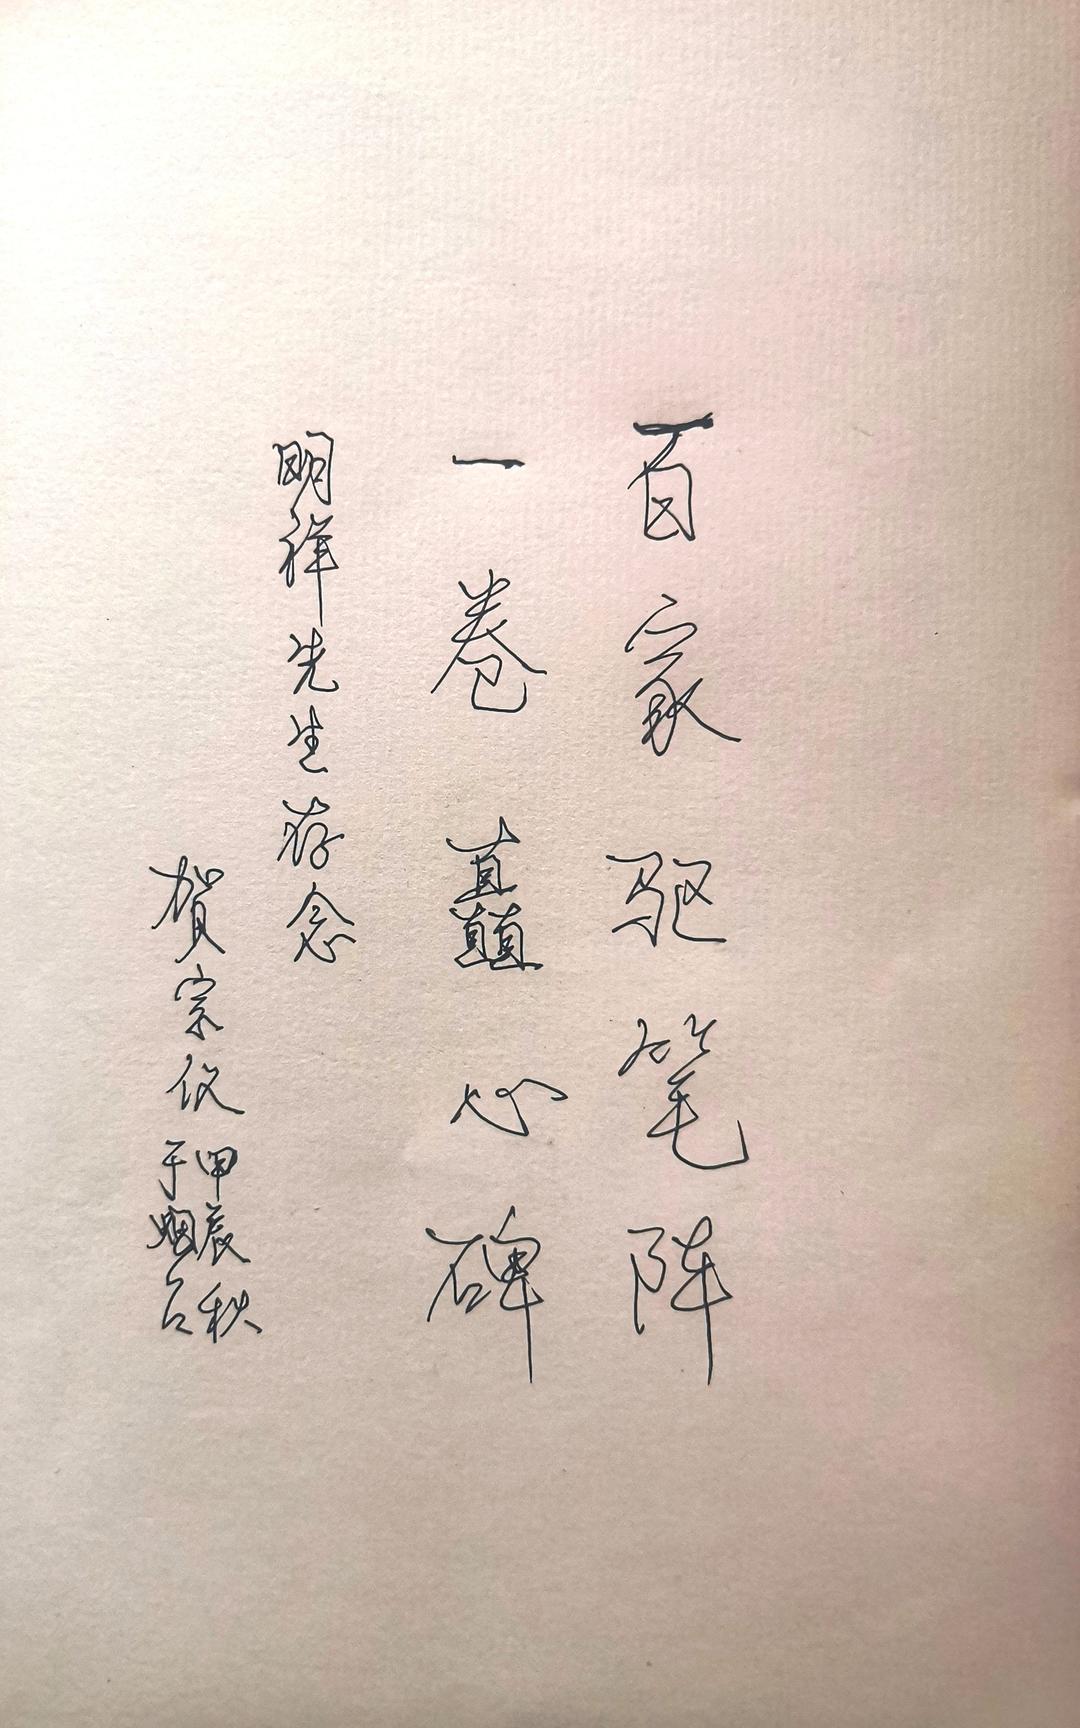 百家驱笔阵
一卷矗心碑
明祥先生存念
贺宗仪
甲辰秋
于烟台